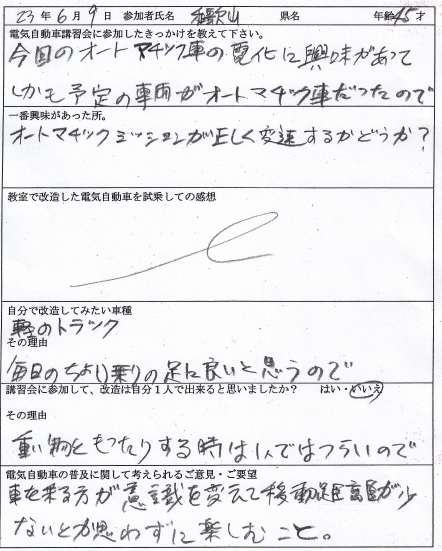 23年 6月 9日 参加者氏名 和歌山 県名 年齢 45才
電気自動車講習会に参加したきっかけを教えて下さい。
今回のオートマチック車の電化に興味があって
しかも予定の車両がオートマチック車だったので
一番興味があった所。
オートマチックミッションが正しく変速するかどうか?
教室で改造した電気自動車を試乗しての感想
自分で改造してみたい車種
軽のトラック
その理由
毎日のちょい乗りの足に良いと思うので
講習会に参加して、改造は自分1人で出来ると思いましたか? はい・いいえ
その理由
重い物をもったりする時は1人ではつらいので
電気自動車の普及に関して考えられるご意見・ご要望
車を乗る方が意識を変えて移動距離が少
ないとか思わずに楽しむこと。